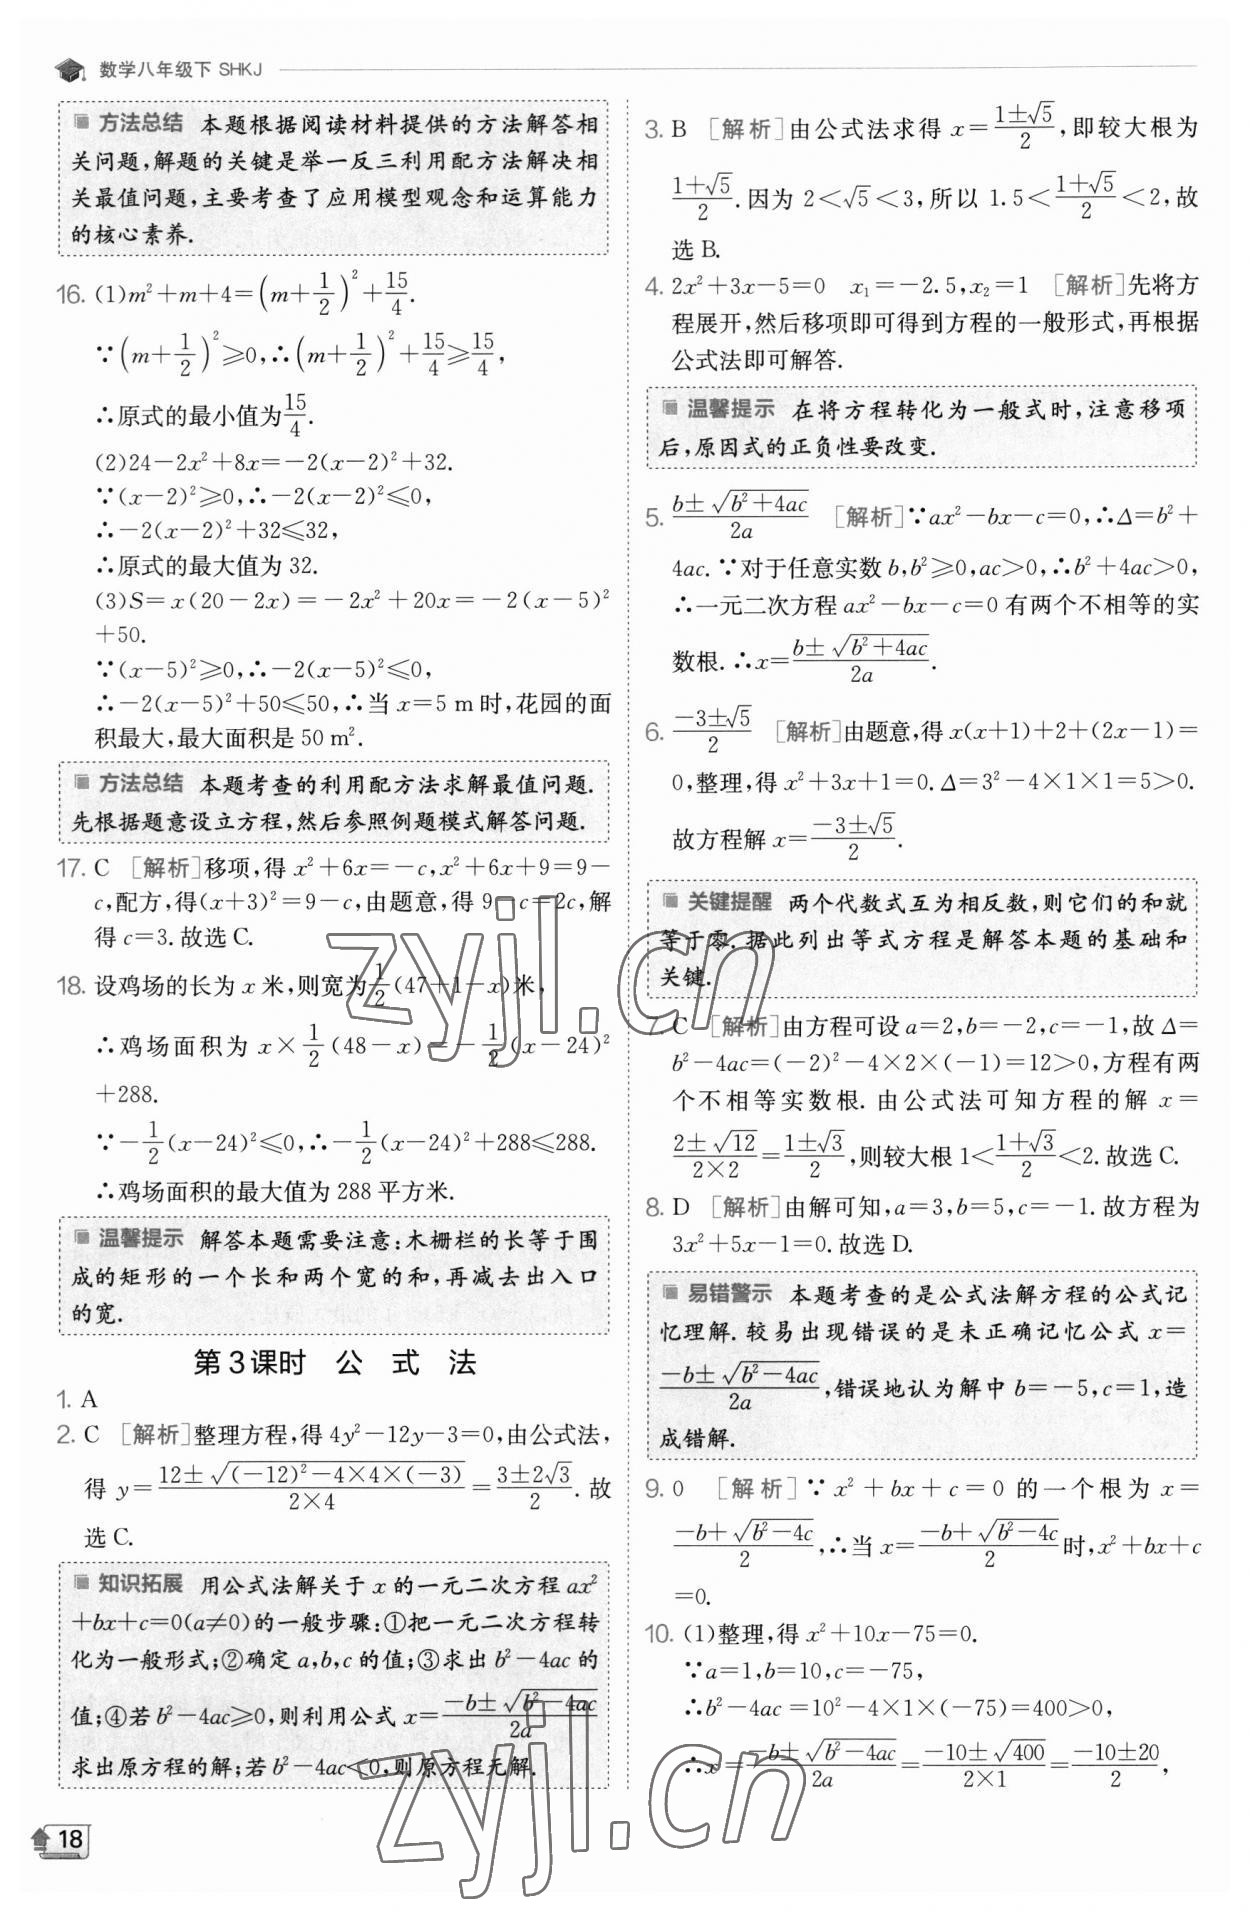 数学八年级下 SHKJ
方法总结 本题根据阅读材料提供的方法解答相
关问题,解题的关键是举一反三利用配方法解决相
关最值问题,主要考查了应用模型观念和运算能力
的核心素养.
16. (1)m²+m+4=(m+1/2)²+15/4.
∵(m+1/2)²≥0,∴(m+1/2)²+15/4≥15/4,
∴原式的最小值为15/4.
(2)24-2x²+8x=-2(x-2)²+32.
∵(x-2)²≥0,∴-2(x-2)²≤0,
∴-2(x-2)²+32≤32,
∴原式的最大值为 32.
(3)S=x(20-2x)=-2x²+20x=-2(x-5)²
+50.
∵(x-5)²≥0,∴-2(x-5)²≤0,
∴-2(x-5)²+50≤50,∴当 x=5 m 时,花园的面
积最大,最大面积是 50 m².
方法总结 本题考查的利用配方法求解最值问题.
先根据题意设立方程,然后参照例题模式解答问题.
17. C [解析]移项,得 x²+6x=-c,x²+6x+9=9-
c,配方,得(x+3)²=9-c,由题意,得 9-c=2c,解
得 c=3.故选C.
18. 设鸡场的长为 x 米,则宽为1/2(47+1-x)米,
∴鸡场面积为 x×1/2(48-x)=-1/2(x-24)²
+288.
∵-1/2(x-24)²≤0,∴-1/2(x-24)²+288≤288.
∴鸡场面积的最大值为 288 平方米.
温馨提示 解答本题需要注意:木栅栏的长等于围
成的矩形的一个长和两个宽的和,再减去出入口
的宽.
第3课时 公 式 法
1. A
2. C [解析]整理方程,得 4y²-12y-3=0,由公式法,
得 y=(12±√((-12)²-4×4×(-3)))/(2×4)=(3±2√3)/2.故
选C.
知识拓展 用公式法解关于 x 的一元二次方程 ax²
+bx+c=0(a≠0)的一般步骤:①把一元二次方程转
化为一般形式;②确定 a,b,c 的值;③求出 b²-4ac 的
值;④若 b²-4ac≥0,则利用公式 x=(-b±√(b²-4ac))/2a
求出原方程的解;若 b²-4ac<0,则原方程无解.
18
3. B [解析]由公式法求得 x=(1±√5)/2,即较大根为
(1+√5)/2.因为 2<√5<3,所以 1.5<(1+√5)/2<2,故
选B.
4. 2x²+3x-5=0 x₁=-2.5,x₂=1 [解析]先将方
程展开,然后移项即可得到方程的一般形式,再根据
公式法即可解答.
温馨提示 在将方程转化为一般式时,注意移项
后,原因式的正负性要改变.
5. (b±√(b²+4ac))/2a [解析]∵ax²-bx-c=0,∴Δ=b²+
4ac.∵对于任意实数 b,b²≥0,ac>0,∴b²+4ac>0,
∴一元二次方程 ax²-bx-c=0 有两个不相等的实
数根.∴x=(b±√(b²+4ac))/2a.
6. (-3±√5)/2 [解析]由题意,得 x(x+1)+2+(2x-1)=
0,整理,得 x²+3x+1=0.Δ=3²-4×1×1=5>0.
故方程解 x=(-3±√5)/2.
关键提醒 两个代数式互为相反数,则它们的和就
等于零.据此列出等式方程是解答本题的基础和
关键.
7. C [解析]由方程可设 a=2,b=-2,c=-1,故 Δ=
b²-4ac=(-2)²-4×2×(-1)=12>0,方程有两
个不相等实数根.由公式法可知方程的解 x=
(2±√12)/(2×2)=(1±√3)/2,则较大根 1<(1+√3)/2<2.故选C.
8. D [解析]由解可知,a=3,b=5,c=-1.故方程为
3x²+5x-1=0.故选D.
易错警示 本题考查的是公式法解方程的公式记
忆理解.较易出现错误的是未正确记忆公式 x=
(-b±√(b²-4ac))/2a,错误地认为解中 b=-5,c=1,造
成错解.
9. 0 [解析]∵x²+bx+c=0 的一个根为 x=
(-b+√(b²-4c))/2,∴当 x=(-b+√(b²-4c))/2时,x²+bx+c
=0.
10. (1)整理,得 x²+10x-75=0.
∵a=1,b=10,c=-75,
∴b²-4ac=10²-4×1×(-75)=400>0,
∴x=(-b±√(b²-4ac))/2a=(-10±√400)/(2×1)=(-10±20)/2,
zyjl.cn
zyjl.cn